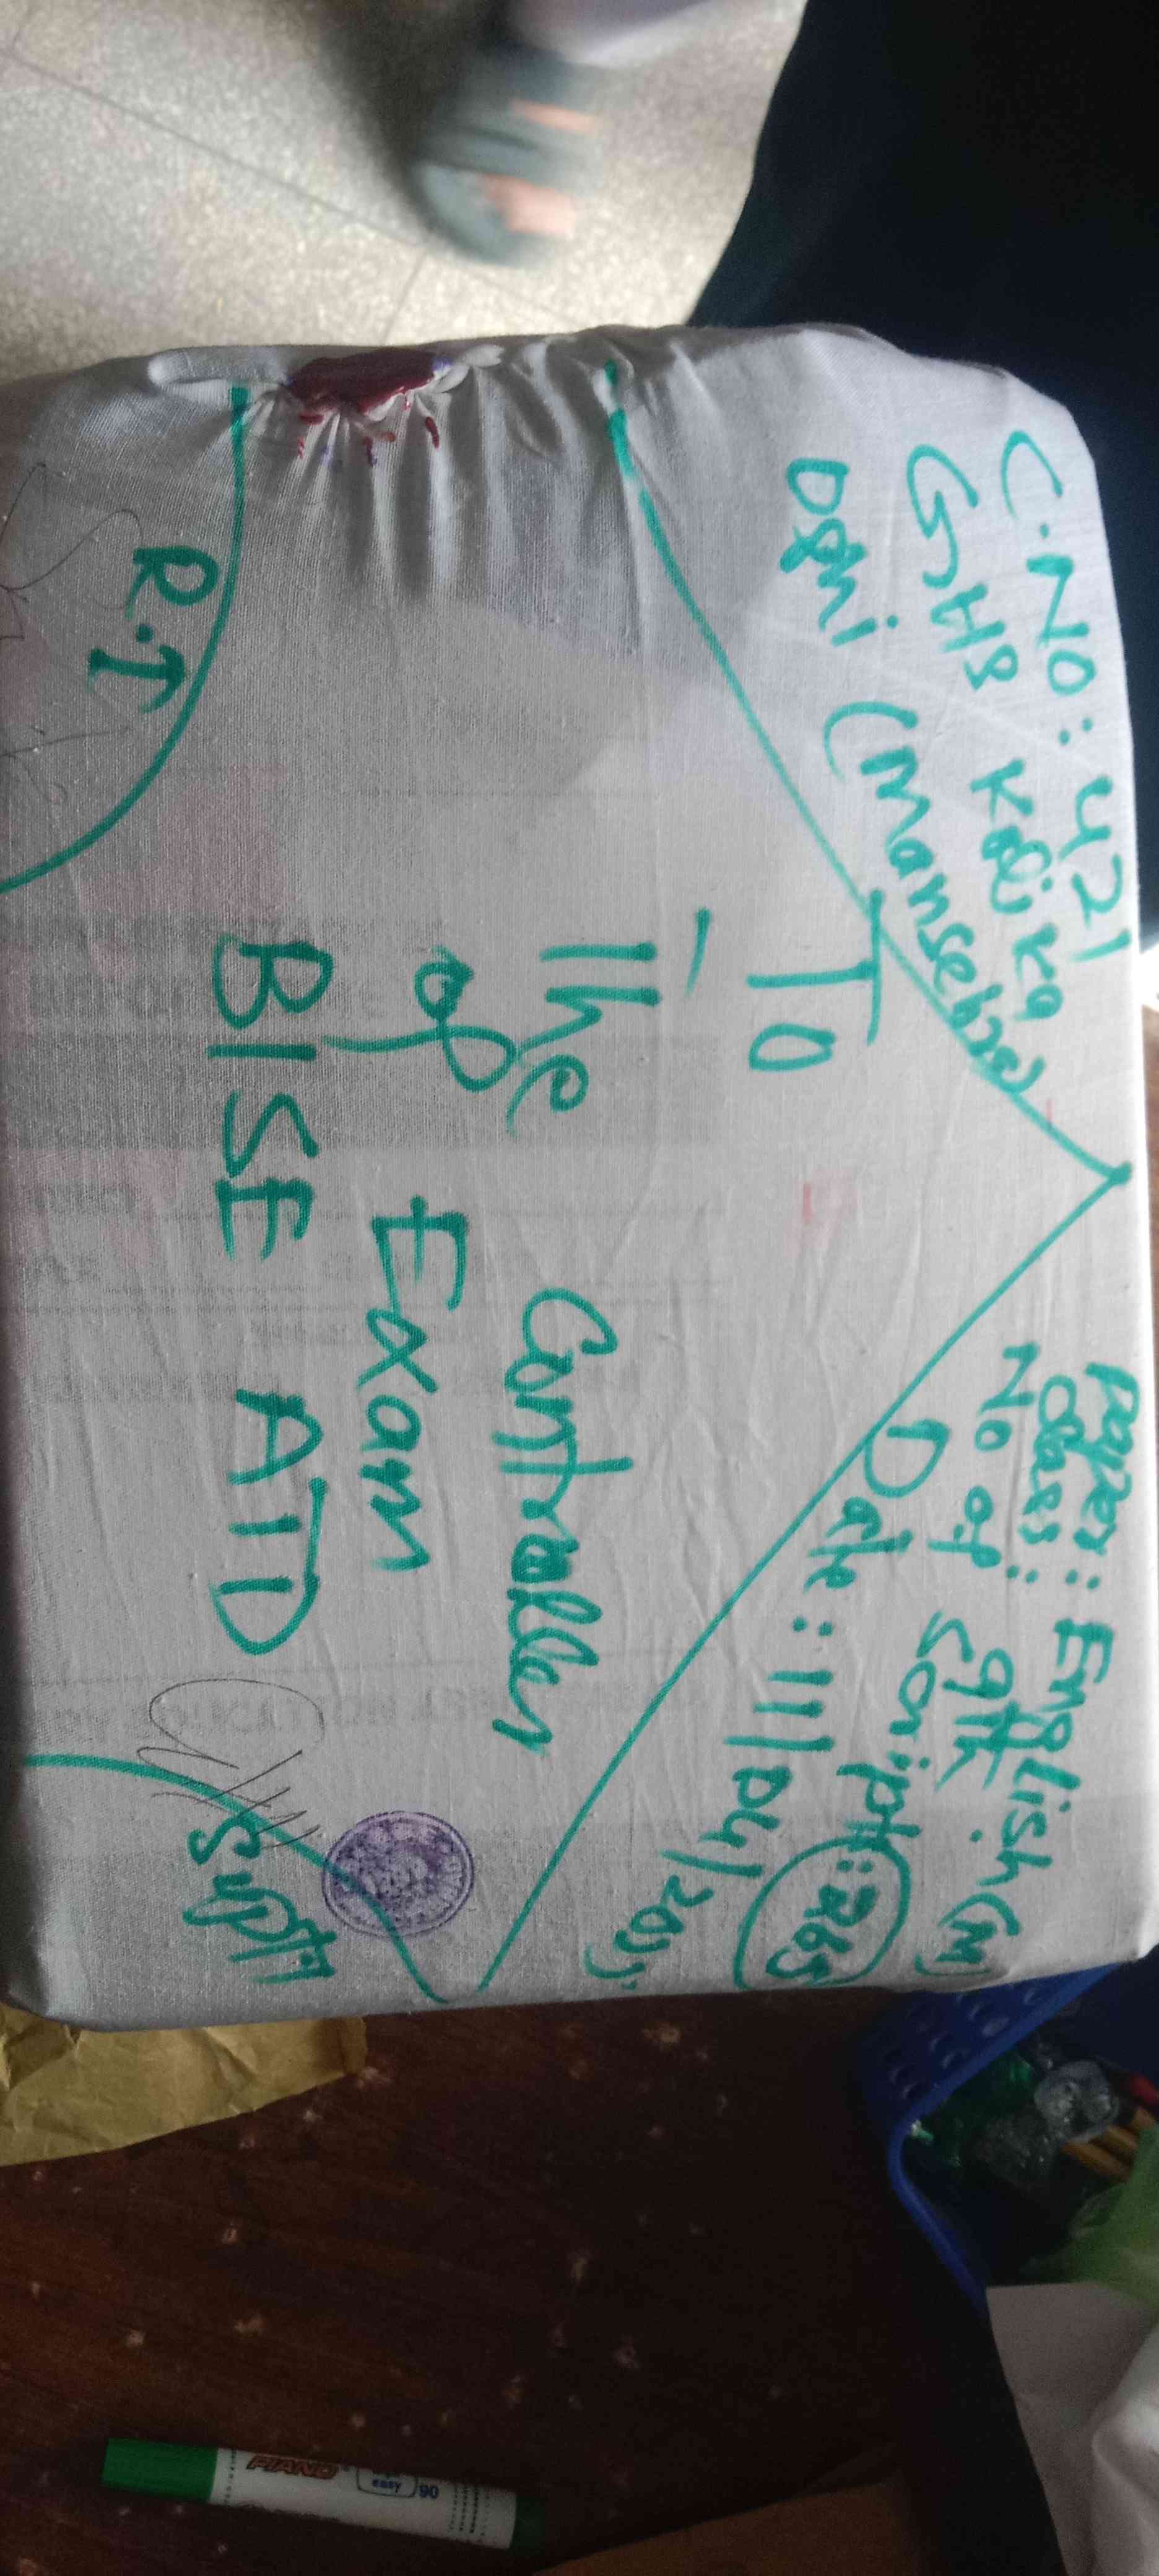 C.No: 421
GHS
Oghi (Mansehra)
Paper: English (M)
Class: 9th
No of Script: 265
Date: 11/04/202
To
The Controller
of Exam
BISE ATD
R.I
Supdtt
PIANO
easy 90